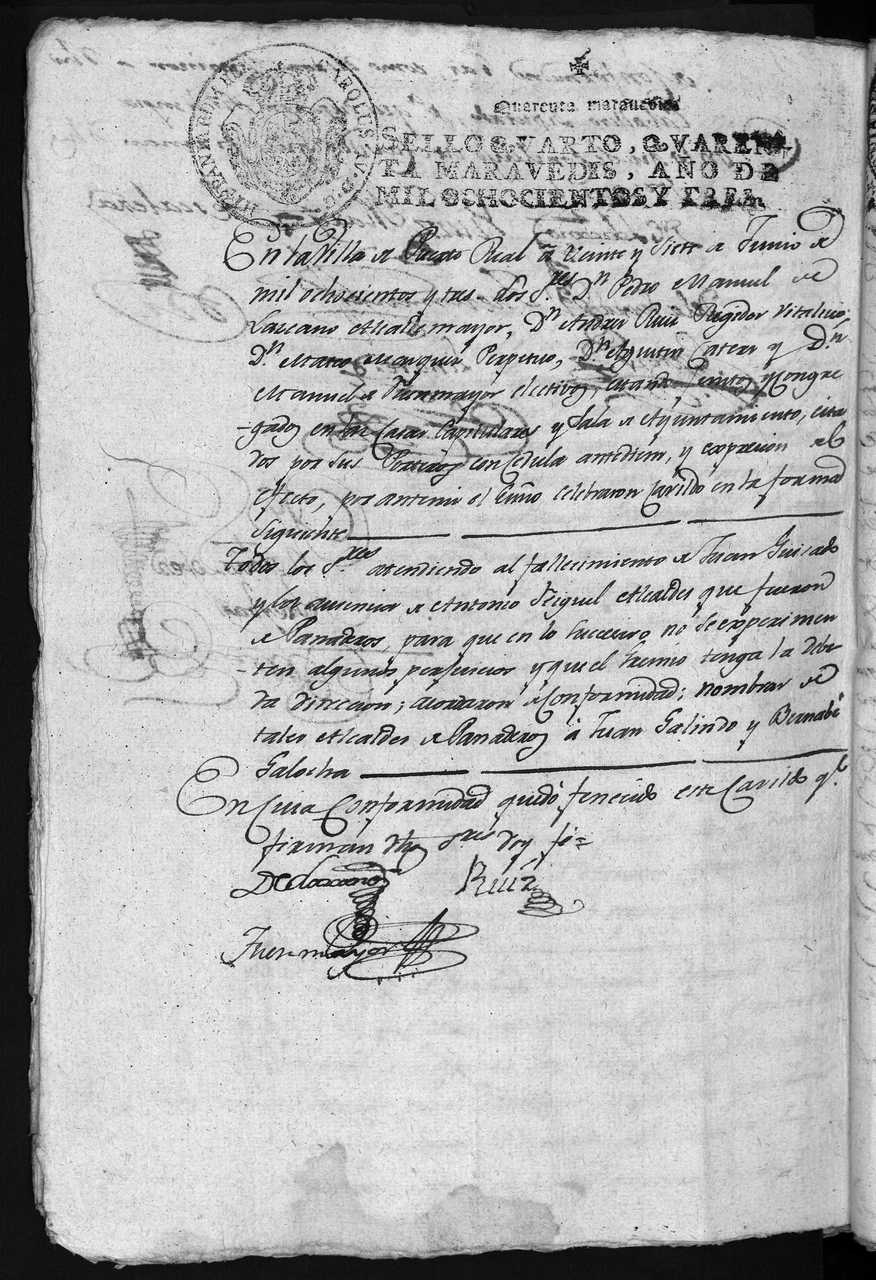 Quarenta maravedis
SELLO QVARTO, QVAREN-
TA MARAVEDIS, AÑO DE
MIL OCHOCIENTOS Y TRES.
HISPANIAR REX CAROLUS IV D G
En la Villa de Puerto Real à Veinte y Siete de Junio de
mil ochocientos y tres. Los S.res D.n Pedro Manuel de
Lazcano Alcalde mayor, D.n Andres Ruiz Regidor Vitalicio,
D.n Mateo Marquez Perpetuo, D.n Agustin y D.n
Manuel de Fuenmayor electivos, estando juntos y Congre
-gados en las Casas Capitulares y Sala de Ayuntamiento, cita
dos por sus Porteros con Cedula antediem, y expresion del
efecto, por antemi el Essno celebraron Cavildo en la forma
siguiente
Todos los S.res atendiendo al fallecimiento de Juan Guisado
y los ausencia de Antonio Alcaldes que fueron
de Panaderos, para que en lo succesivo no se experimen
-ten algunos perjuicios y que el Gremio tenga la debi
da direccion; acordaron de Conformidad; nombrar de
tales Alcaldes de Panaderos à Juan Galindo y Bernabè
Galocha
En Cuia Conformidad quedò fenecido este Cavildo q.e
firman dhos Sres doy fè=
DeLazcano Ruiz
Fuenmayor